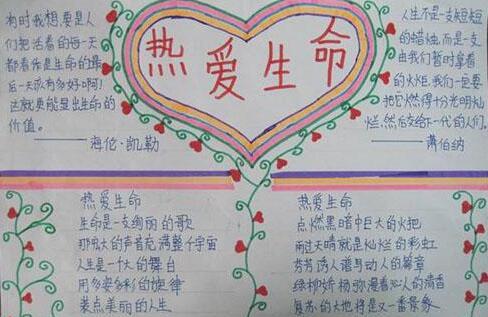 有时我想,要是人
们把活着的每一天
都看作是生命的最
后一天该有多好啊!
这就更能显出生命的
价值。
——海伦·凯勒
热爱生命
人生不是一支短短
的蜡烛,而是一支
由我们暂时拿着
的火炬,我们一定要
把它燃得十分光明灿
烂,然后交给下一代的人们。
——萧伯纳
热爱生命
生命是一支绚丽的歌
那宏大的声音充满整个宇宙
人生是一个大的舞台
用多姿多彩的旋律
装点美丽的人生
热爱生命
点燃黑暗中巨大的火把
雨过天晴就是灿烂的彩虹
芬芳诱人谱写动人的篇章
绿柳娇杨弥漫着沁人的清香
复苏的大地将是又一番景象